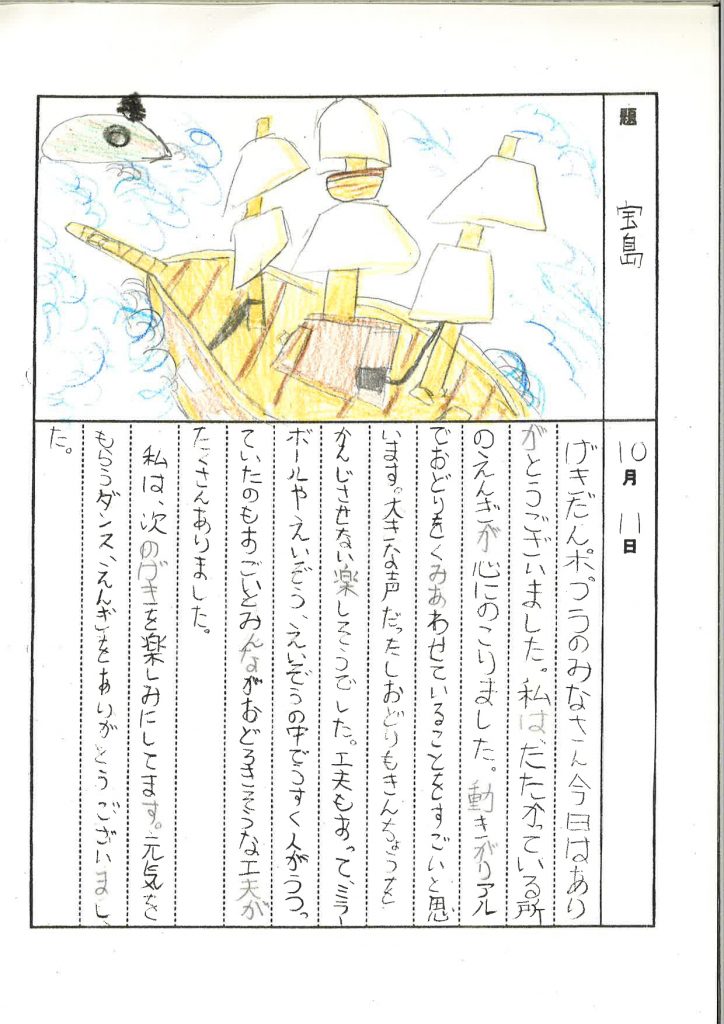 題 宝島
10月11日
げきだんポプラのみなさん今日はあり
がとうございました。私はだたかっている所
のえんぎが心にのこりました。動きがリアル
でおどりをくみあわせていることをすごいと思
います。大きな声だったしおどりもきんちょうを
かんじさせない楽しそうでした。工夫もあって、ミラー
ボールや、えいぞう、えいぞうの中でうすく人がうつっ
ていたのもすごいとみんながおどろきそうな工夫が
たくさんありました。
私は、次のげきを楽しみにしてます。元気を
もらうダンス、えんぎをありがとうございまし
た。